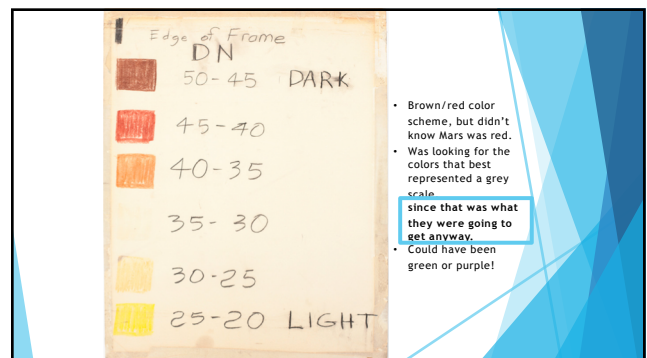 Edge of Frame
DN
50-45 DARK
45-40
40-35
35-30
30-25
25-20 LIGHT
• Brown/red color
scheme, but didn't
know Mars was red.
• Was looking for the
colors that best
represented a grey
scale
since that was what
they were going to
get anyway.
• Could have been
green or purple!